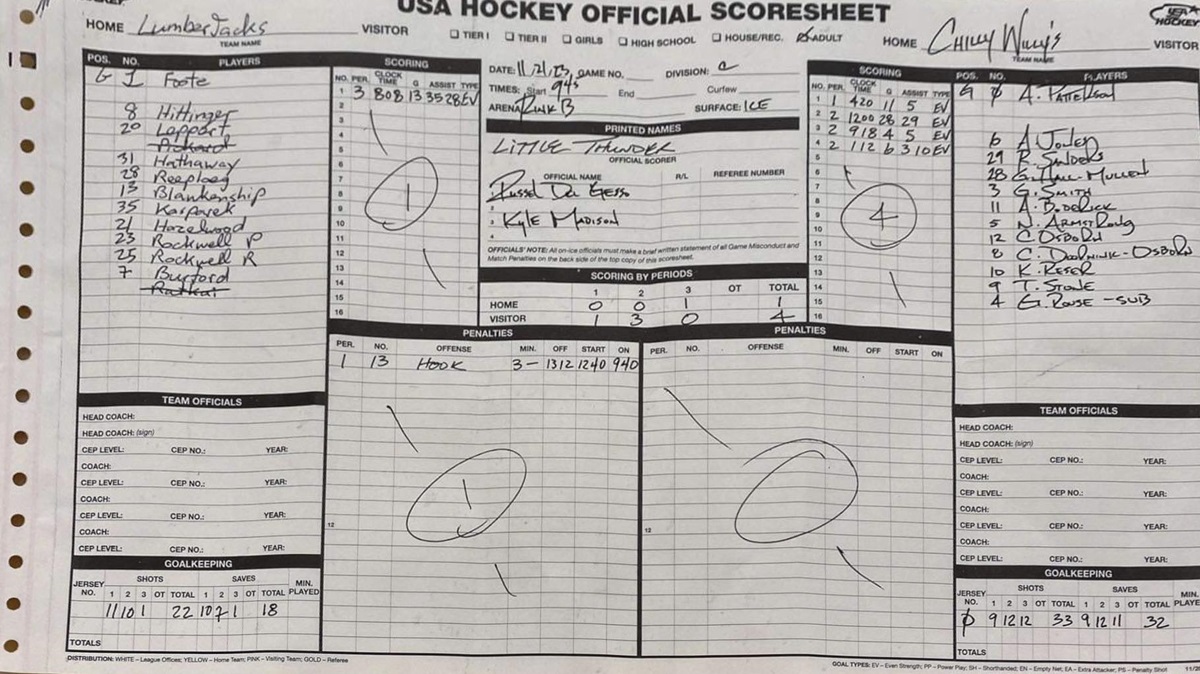 USA HOCKEY OFFICIAL SCORESHEET
HOME LumberJacks VISITOR
TEAM NAME
☐ TIER I ☐ TIER II ☐ GIRLS ☐ HIGH SCHOOL ☐ HOUSE/REC. ☒ ADULT
HOME Chilly Willy's VISITOR
TEAM NAME
USA HOCKEY
POS. NO. PLAYERS
G 1 Foote
8 Hittinger
20 Lappart
31 Hathaway
28 Reeploeg
13 Blankenship
35 Kasparek
21 Hazelwood
23 Rockwell P
25 Rockwell R
7 Burford
SCORING
NO. PER. CLOCK TIME G ASSIST TYPE
1 3 808 13 35 28 EV
2
3
4
5
6
7
8
9
10
11
12
13
14
15
16
1
DATE: 11/21/23 GAME NO. DIVISION: C
TIMES: Start 945 End Curfew
ARENA Rink B SURFACE: ICE
PRINTED NAMES
LITTLE THUNDER
OFFICIAL SCORER
OFFICIAL NAME R/L REFEREE NUMBER
Kyle Madison
OFFICIALS' NOTE: All on-ice officials must make a brief written statement of all Game Misconduct and
Match Penalties on the back side of the top copy of this scoresheet.
SCORING BY PERIODS
1 2 3 OT TOTAL
HOME 0 0 1 1
VISITOR 1 3 0 4
SCORING
NO. PER. CLOCK TIME G ASSIST TYPE
1 1 420 11 5 EV
2 2 1200 28 29 EV
3 2 918 4 5 EV
4 2 112 6 3 10 EV
5
6
7
8
9
10
11
12
13
14
15
16
4
POS. NO. PLAYERS
G 0 A. Patterson
6 A. Jones
29 R. Sanders
28 G. Hall-Mullen
3 G. Smith
11 A. Boderick
5 N. Armstrong
12 C. Osborn
8 C. Doornink-Osborn
10 K. Reser
9 T. Stone
4 G. Rouse - SUB
PENALTIES
PER. NO. OFFENSE MIN. OFF START ON
1 13 HOOK 3- 1312 1240 940
12
1
PENALTIES
PER. NO. OFFENSE MIN. OFF START ON
12
TEAM OFFICIALS
HEAD COACH:
HEAD COACH: (sign)
CEP LEVEL: CEP NO.: YEAR:
COACH:
CEP LEVEL: CEP NO.: YEAR:
COACH:
CEP LEVEL: CEP NO.: YEAR:
COACH:
CEP LEVEL: CEP NO.: YEAR:
GOALKEEPING
JERSEY NO. SHOTS SAVES MIN. PLAYED
1 2 3 OT TOTAL 1 2 3 OT TOTAL
11 10 1 22 10 7 1 18
TOTALS
TEAM OFFICIALS
HEAD COACH:
HEAD COACH: (sign)
CEP LEVEL: CEP NO.: YEAR:
COACH:
CEP LEVEL: CEP NO.: YEAR:
COACH:
CEP LEVEL: CEP NO.: YEAR:
COACH:
CEP LEVEL: CEP NO.: YEAR:
GOALKEEPING
JERSEY NO. SHOTS SAVES MIN. PLAYE
1 2 3 OT TOTAL 1 2 3 OT TOTAL
0 9 12 12 33 9 12 11 32
TOTALS
DISTRIBUTION: WHITE – League Offices; YELLOW – Home Team; PINK – Visiting Team; GOLD – Referee
GOAL TYPES: EV – Even Strength; PP – Power Play; SH – Shorthanded; EN – Empty Net; EA – Extra Attacker; PS – Penalty Shot 11/20